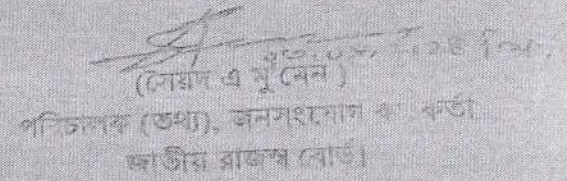 (সৈয়দ এ মু মেন)
পরিচালক (তথ্য), জনসংযোগ কর্মকর্তা
জাতীয় রাজস্ব বোর্ড।